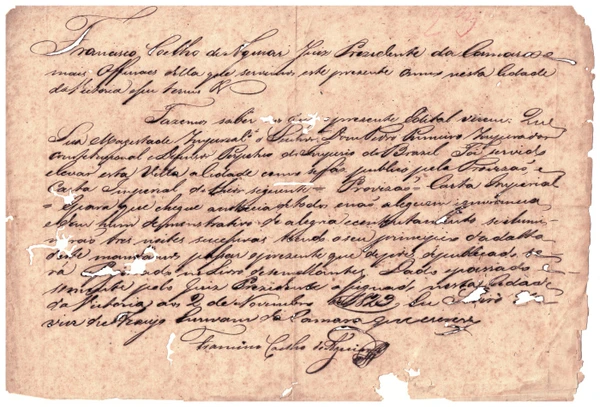 Francisco Coelho de Aguiar Juiz Presidente da Camara e
mais Officiaes della que servimos este presente Anno nesta Cidade
da Victoria e seu termo &
Fazemos saber aos que o presente Edital virem: Que
Sua Magestade Imperial o Senhor Dom Pedro Primeiro Imperador
Constitucional e Defensor Perpetuo do Imperio do Brasil Foi servido
elevar esta Villa a Cidade como se faz publico pela Provizão, e
Carta Imperial do theor seguinte Provizão, Carta Imperial
e para que chegue a noticia de todos e não aleguem ignorancia
e em demonstrativo de alegria e contentamento se illumi-
narão tres noites sucessivas tendo o seu principio da data
deste mandamos passar o presente que depois de publicado se
rá Dado e passado
somente pelo Juiz Presidente asignado nesta Cidade
da Victoria aos 2 de Novembro 1823 Eu
vier de Araujo Escrivam da Camara que escrevi
Francisco Coelho de Aguiar